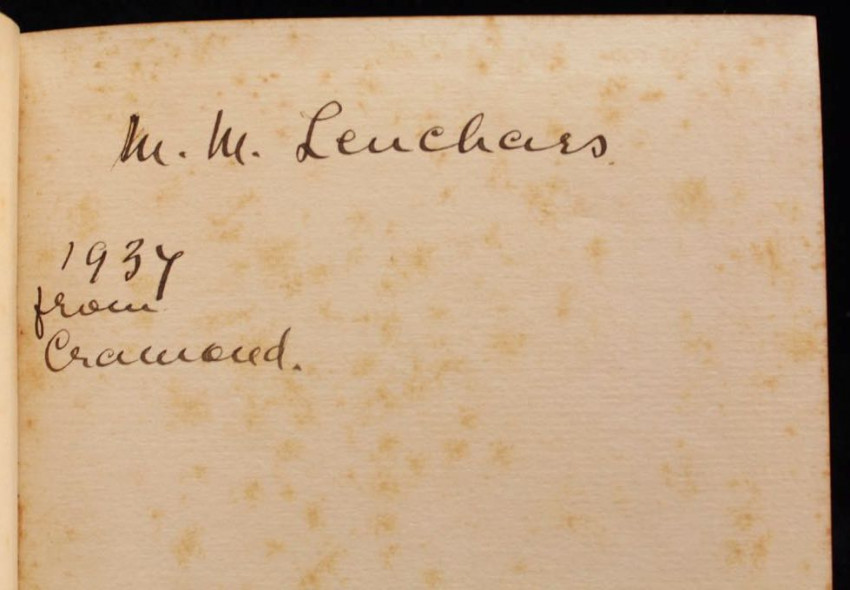 M. M. Leuchars
1937
from
Cramond.